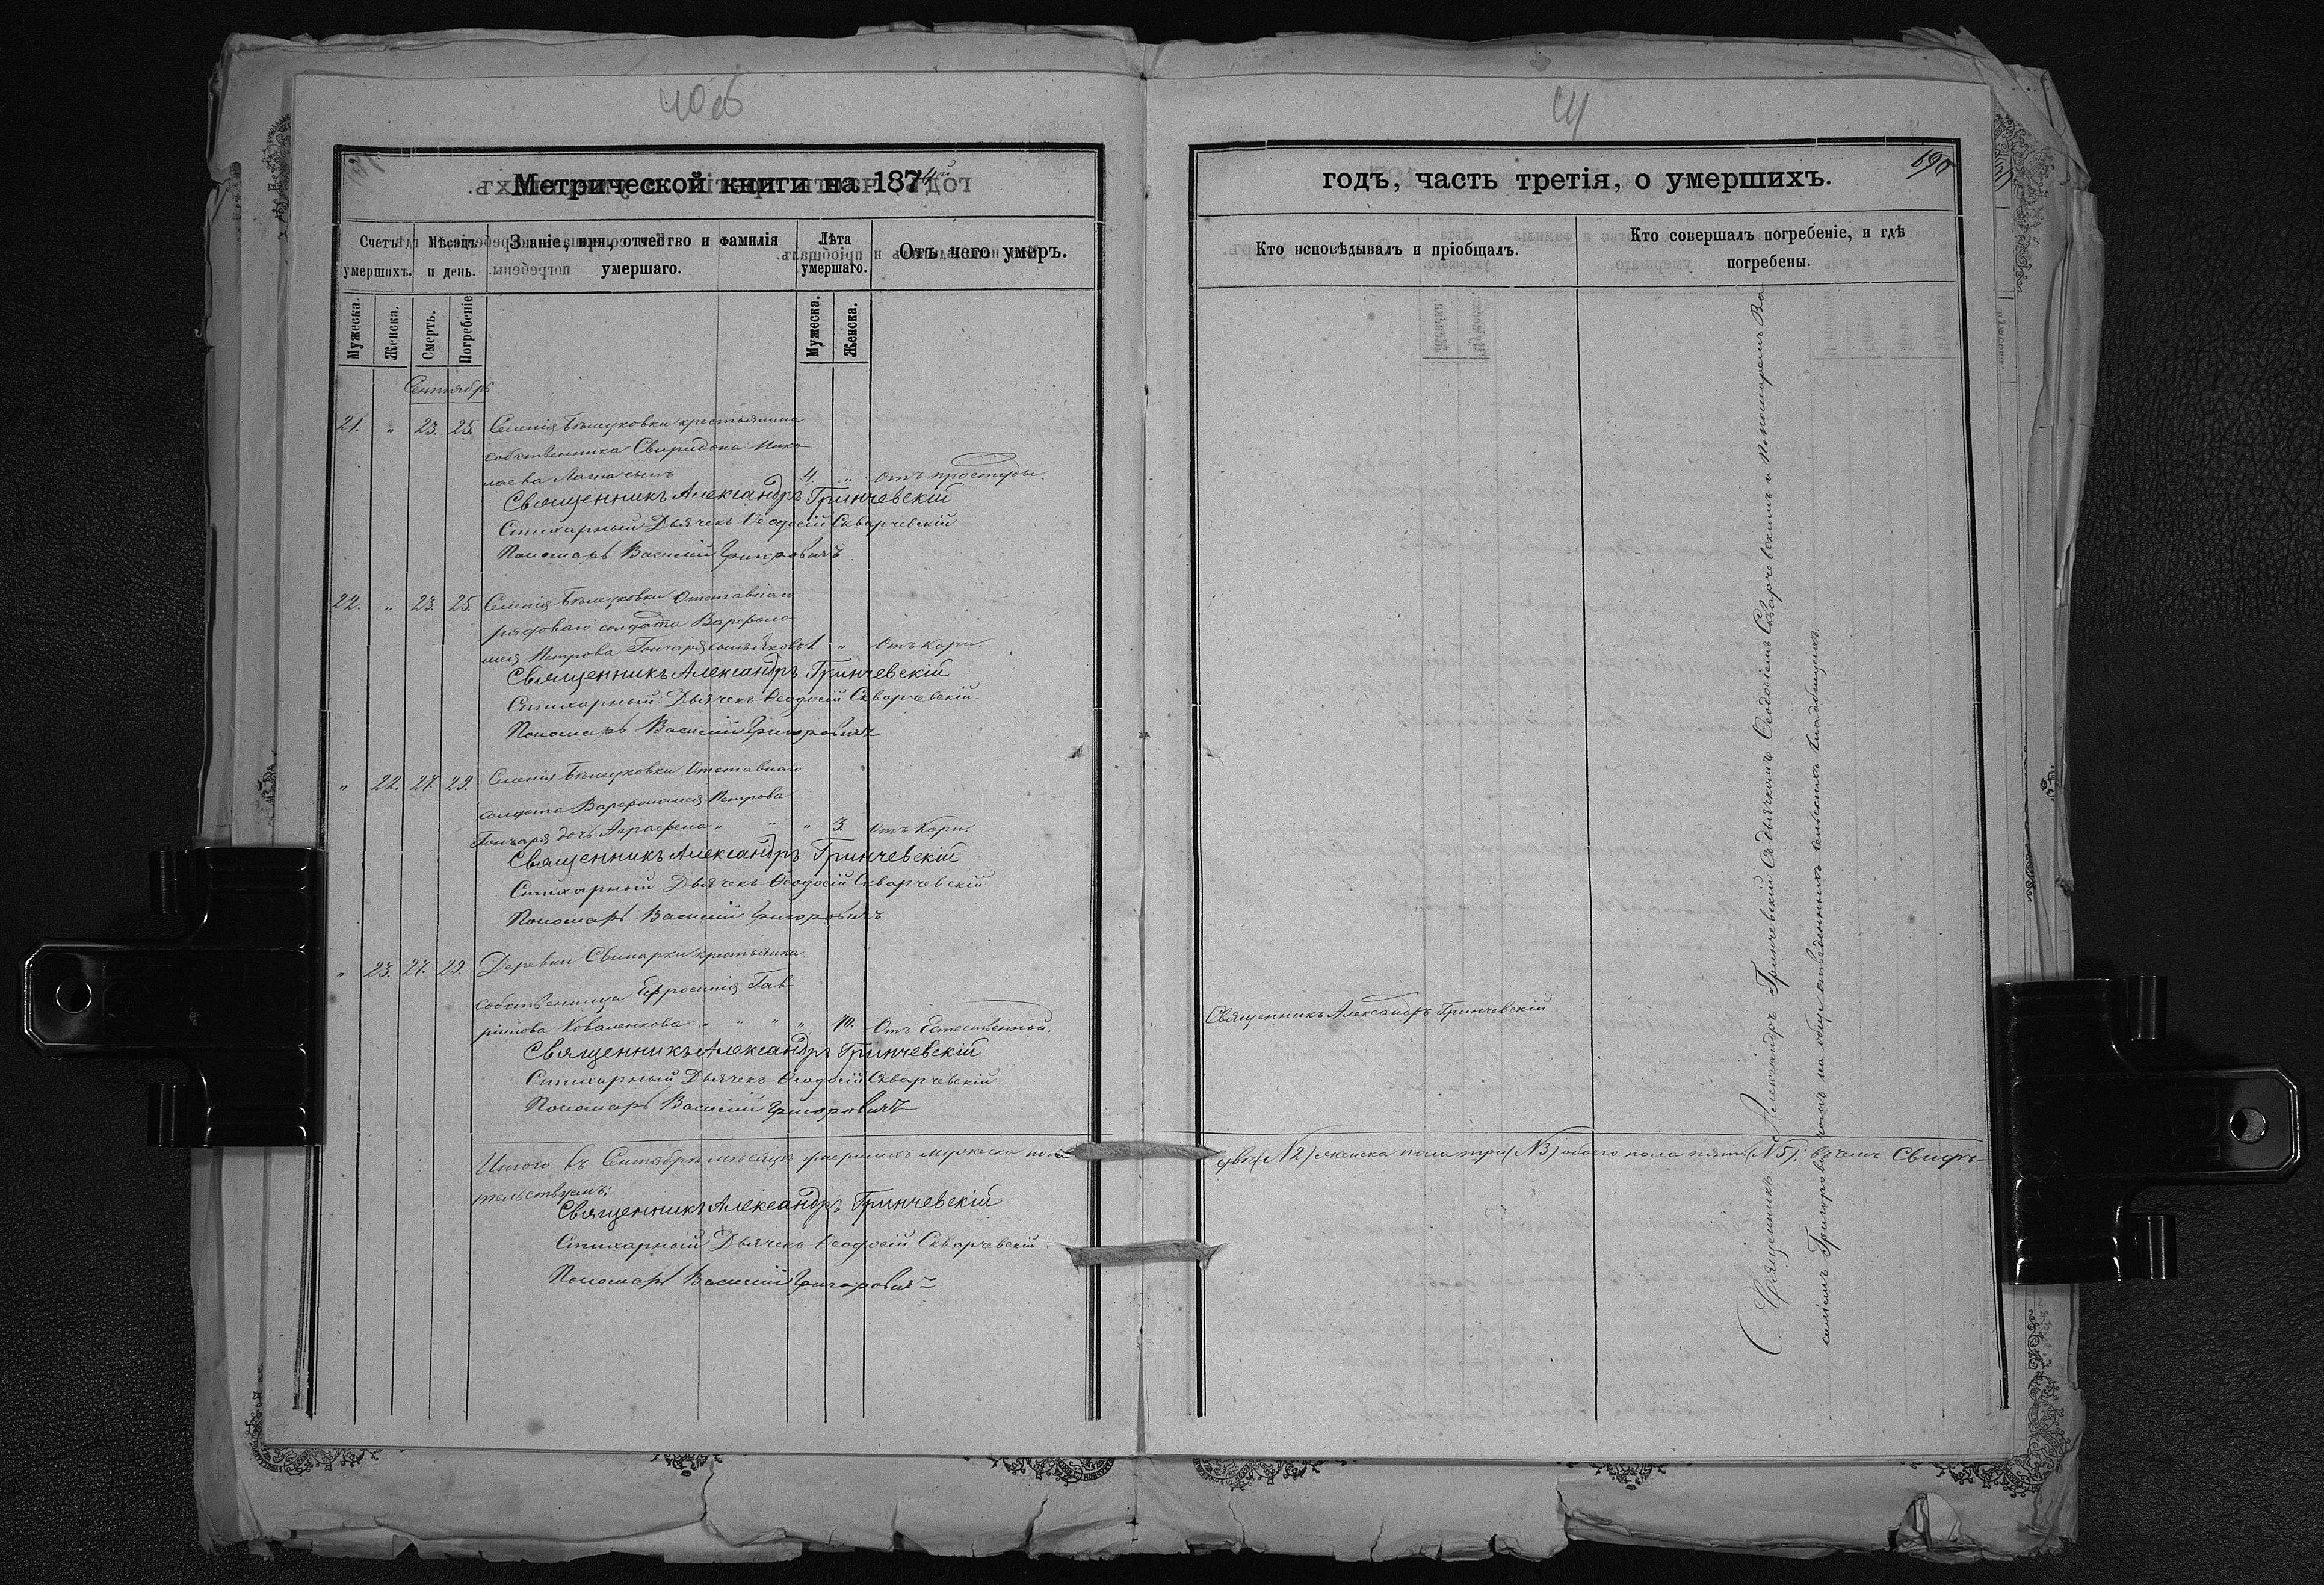 40об
41
690
Метрической книги на 1874й
годъ, часть третія, о умершихъ.
Счетъ умершихъ.
Мѣсяцъ и день.
Званіе, имя, отчество и фамилія умершаго.
Лѣта умершаго.
Отъ чего умеръ.
Кто исповѣдывалъ и пріобщалъ.
Кто совершалъ погребеніе, и гдѣ погребены.
Мужеска.
Женска.
Смерть.
Погребеніе
Мужеска.
Женска.
Сентябрь
21. „ 23. 25. Селенія крестьянина
собственника Свиридона Нико
лаева сынъ 4. „ отъ простуды.
Священникъ Александръ Гринчевскій
Стихарный Дьячекъ Ѳеодосій Скварчевскій
Пономарь Василій Григоровичъ
22. „ 23. 25. Селенія Отставнаго
рядоваго солдата Варѳоло
мея Петрова Гончаря сынъ Яковъ 1 „ Отъ Кори.
Священникъ Александръ Гринчевскій
Стихарный Дьячекъ Ѳеодосій Скварчевскій
Пономарь Василій Григоровичъ
„ 22. 27. 29. Селенія Отставнаго
солдата Варѳоломея Петрова
Гончаря дочь Аграфена „ „ „ 3. Отъ Кори.
Священникъ Александръ Гринчевскій
Стихарный Дьячекъ Ѳеодосій Скварчевскій
Пономарь Василій Григоровичъ
„ 23. 27. 29. Деревни Свинарки крестьянка
собственница Ефросинія Гав
ріилова Коваленкова „ „ „ „ 70. Отъ Естественной.
Священникъ Александръ Гринчевскій
Священникъ Александръ Гринчевскій
Стихарный Дьячекъ Ѳеодосій Скварчевскій
Пономарь Василій Григоровичъ
Итого въ Сентябрѣ мѣсяцѣ умершихъ мужеска пола
два (№2) женска пола три (№3) обоего пола пять (№5). въ чемъ Свидѣ-
тельствуемъ:
Священникъ Александръ Гринчевскій
Стихарный Дьячекъ Ѳеодосій Скварчевскій
Пономарь Василій Григоровичъ
Священникъ Александръ Гринчевскій съ дьячкомъ Ѳеодосіемъ Скварчевскимъ и Пономаремъ Ва
силіемъ Григоровичомъ на отведенныхъ сельскихъ кладбищахъ.